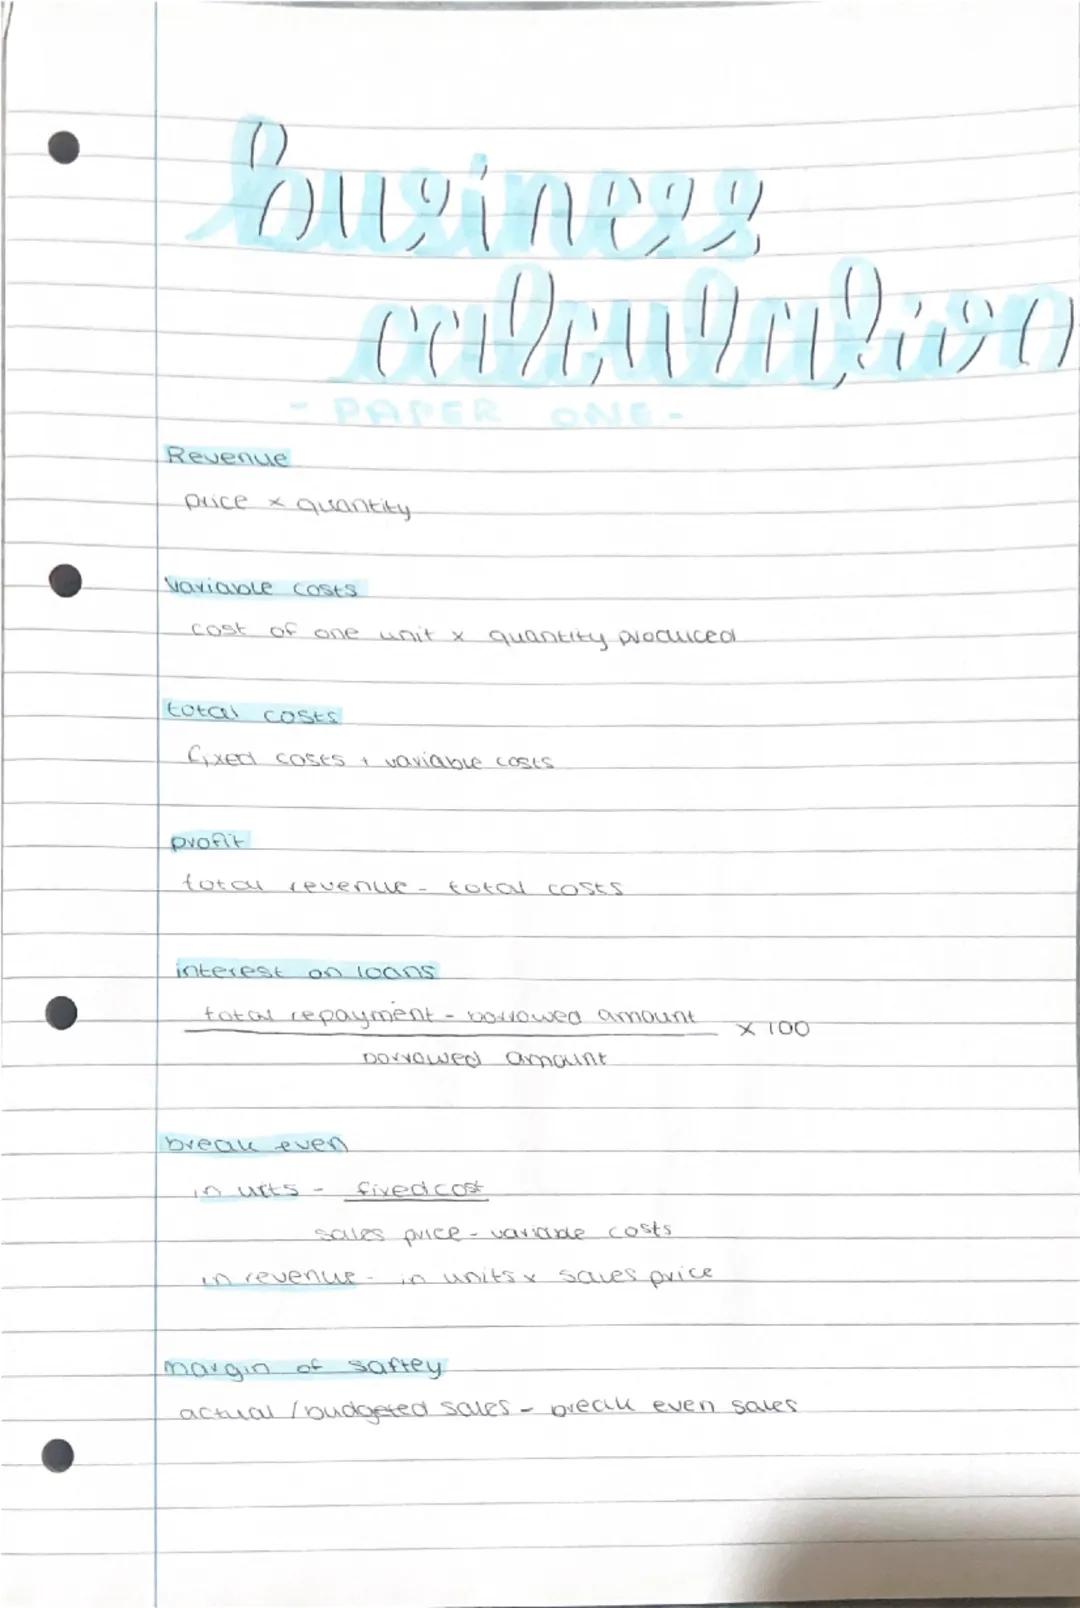 business
calculation
- PAPER ONE -
Revenue
price x quantity
variable costs
cost of one unit x quantity produced
total costs
fixed costs + variable costs
profit
total revenue - total costs
interest on loans
total repayment - borrowed amount
x 100
borrowed amount
break even
in uits - fixed cost
sales price - variable costs
in revenue - in units x sales price
margin of saftey
actual / budgeted sales - break even sales